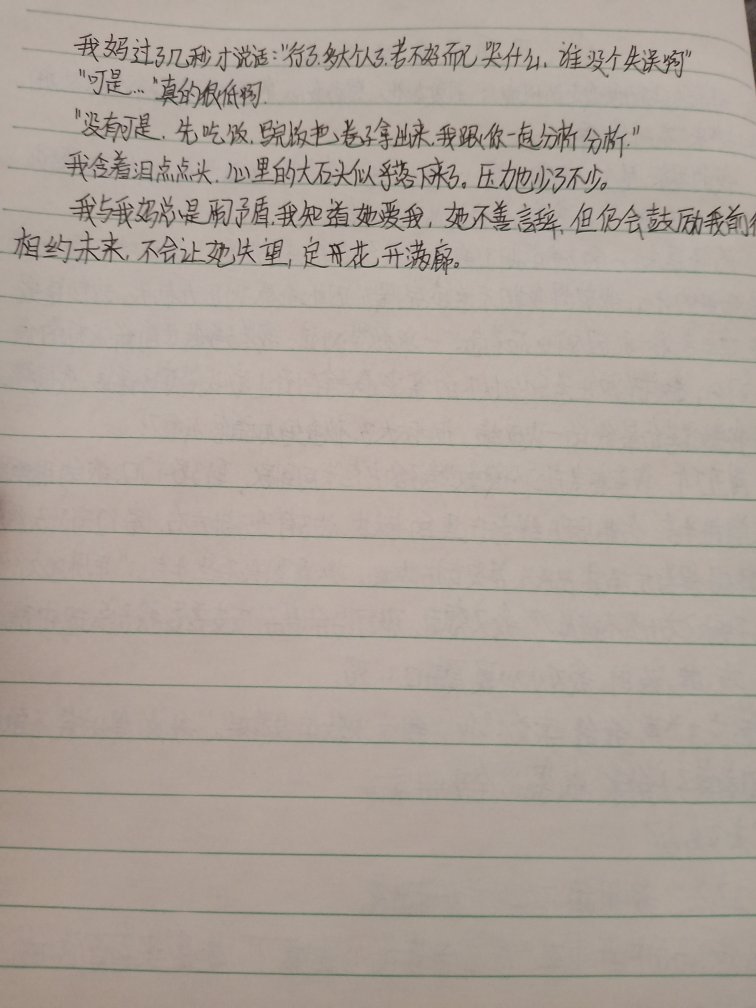 我妈过了几秒才说话："行了.多大个人了.考不好而已 哭什么. 谁没个失误啊"
"可是…"真的很低啊.
"没有可是. 先吃饭. 吃完饭把卷子拿出来.我跟你一起分析 分析."
我含着泪点点头. 心里的大石头似乎落下来了。压力也少了不少。
我与我妈总是闹矛盾.我知道她爱我, 她不善言辞, 但仍会鼓励我前
相约未来, 不会让她失望, 定开花开满廊。